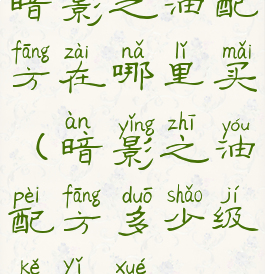 暗影之油配
fāng zài nǎ lǐ mǎi
方在哪里买
àn yǐng zhī yóu
(暗影之油
pèi fāng duō shǎo jí
配方多少级
kě yǐ xué